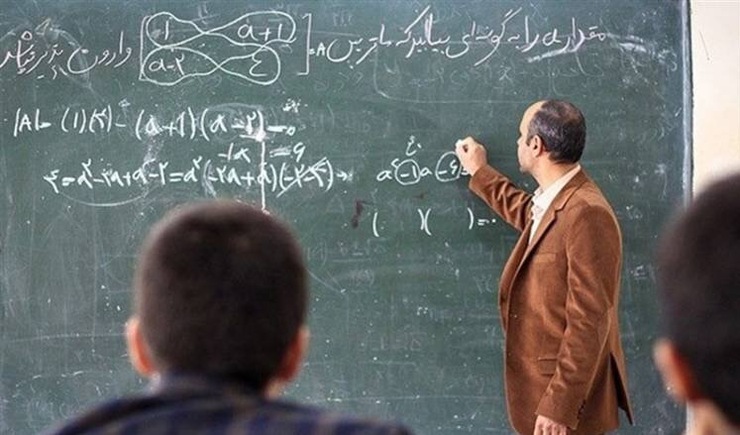 مقدار a را به گونه‌ای بیابید که ماتریس A = [1 a+1
a-2 4] وارون پذیر نباشد
|A| = (1)(4) - (a+1)(a-2) = 0
4 = a² - 2a + a - 2 = a² (-2a + a)(-2-4) →
-1a = -6
a² -1 a -6 =
( )( ) = 0